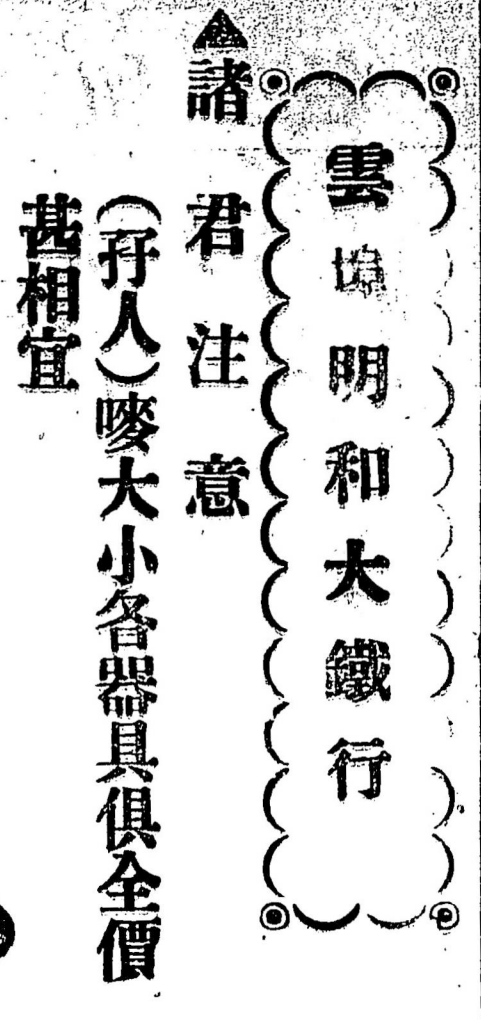 雲埠明和大鐵行
▲諸君注意
(孖人)嘜大小各器具俱全價
甚相宜